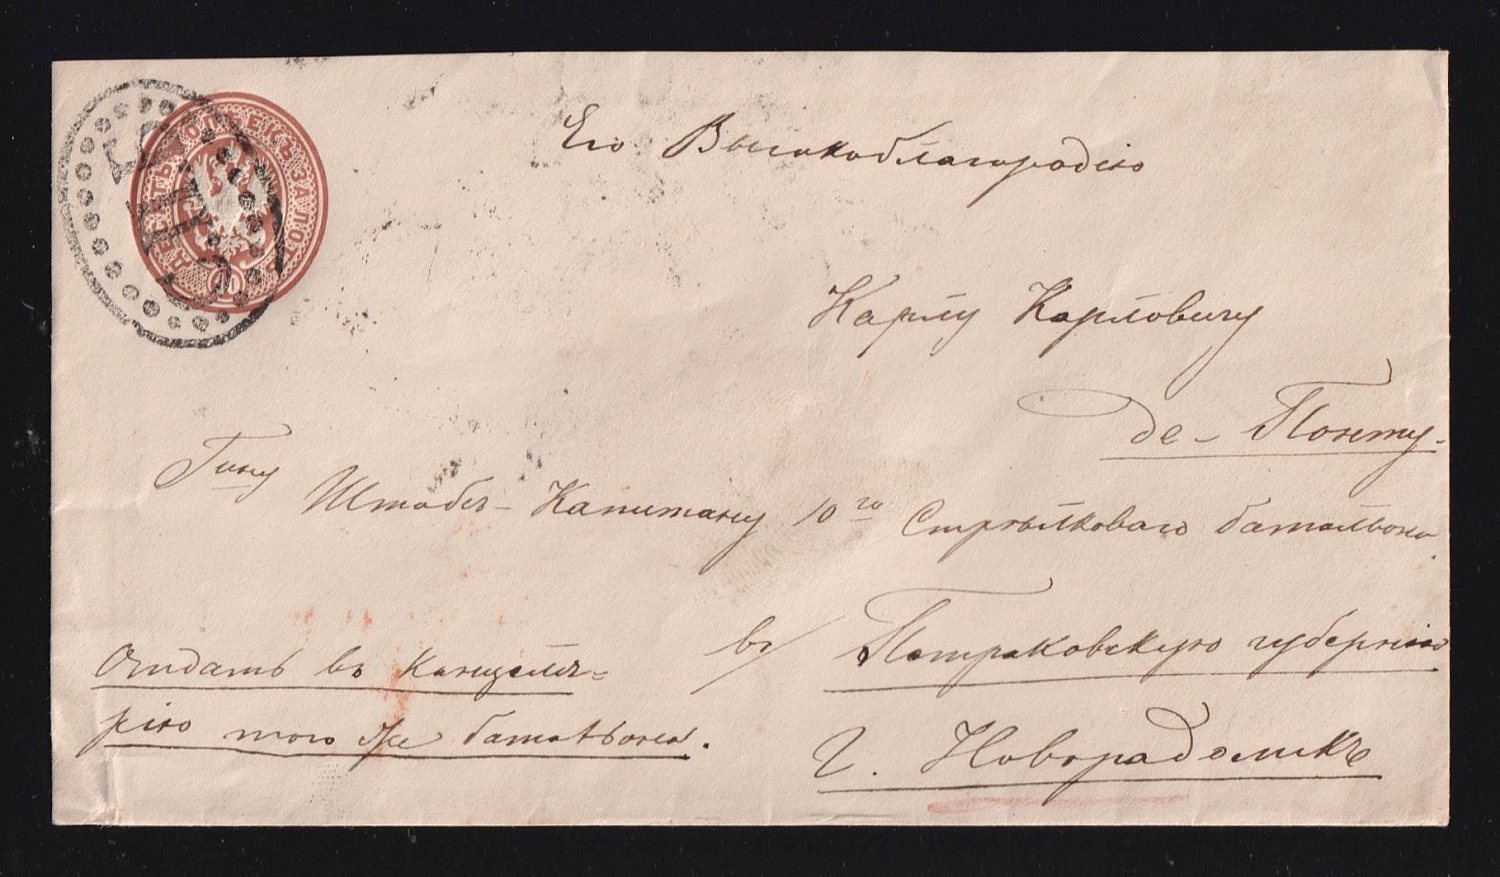 ДЕСЯТЬ КОПѢЕКЪ ЗА ЛОТЪ
10
Его Высокоблагородію
Карлу Карловичу
де-Понту
Гину Штабсъ-Капитану 10го Стрѣлковаго баталіона
въ Петраковскую губернію
г. Новорадомскъ
Отдать въ Канцеля=
рію того же баталіона.